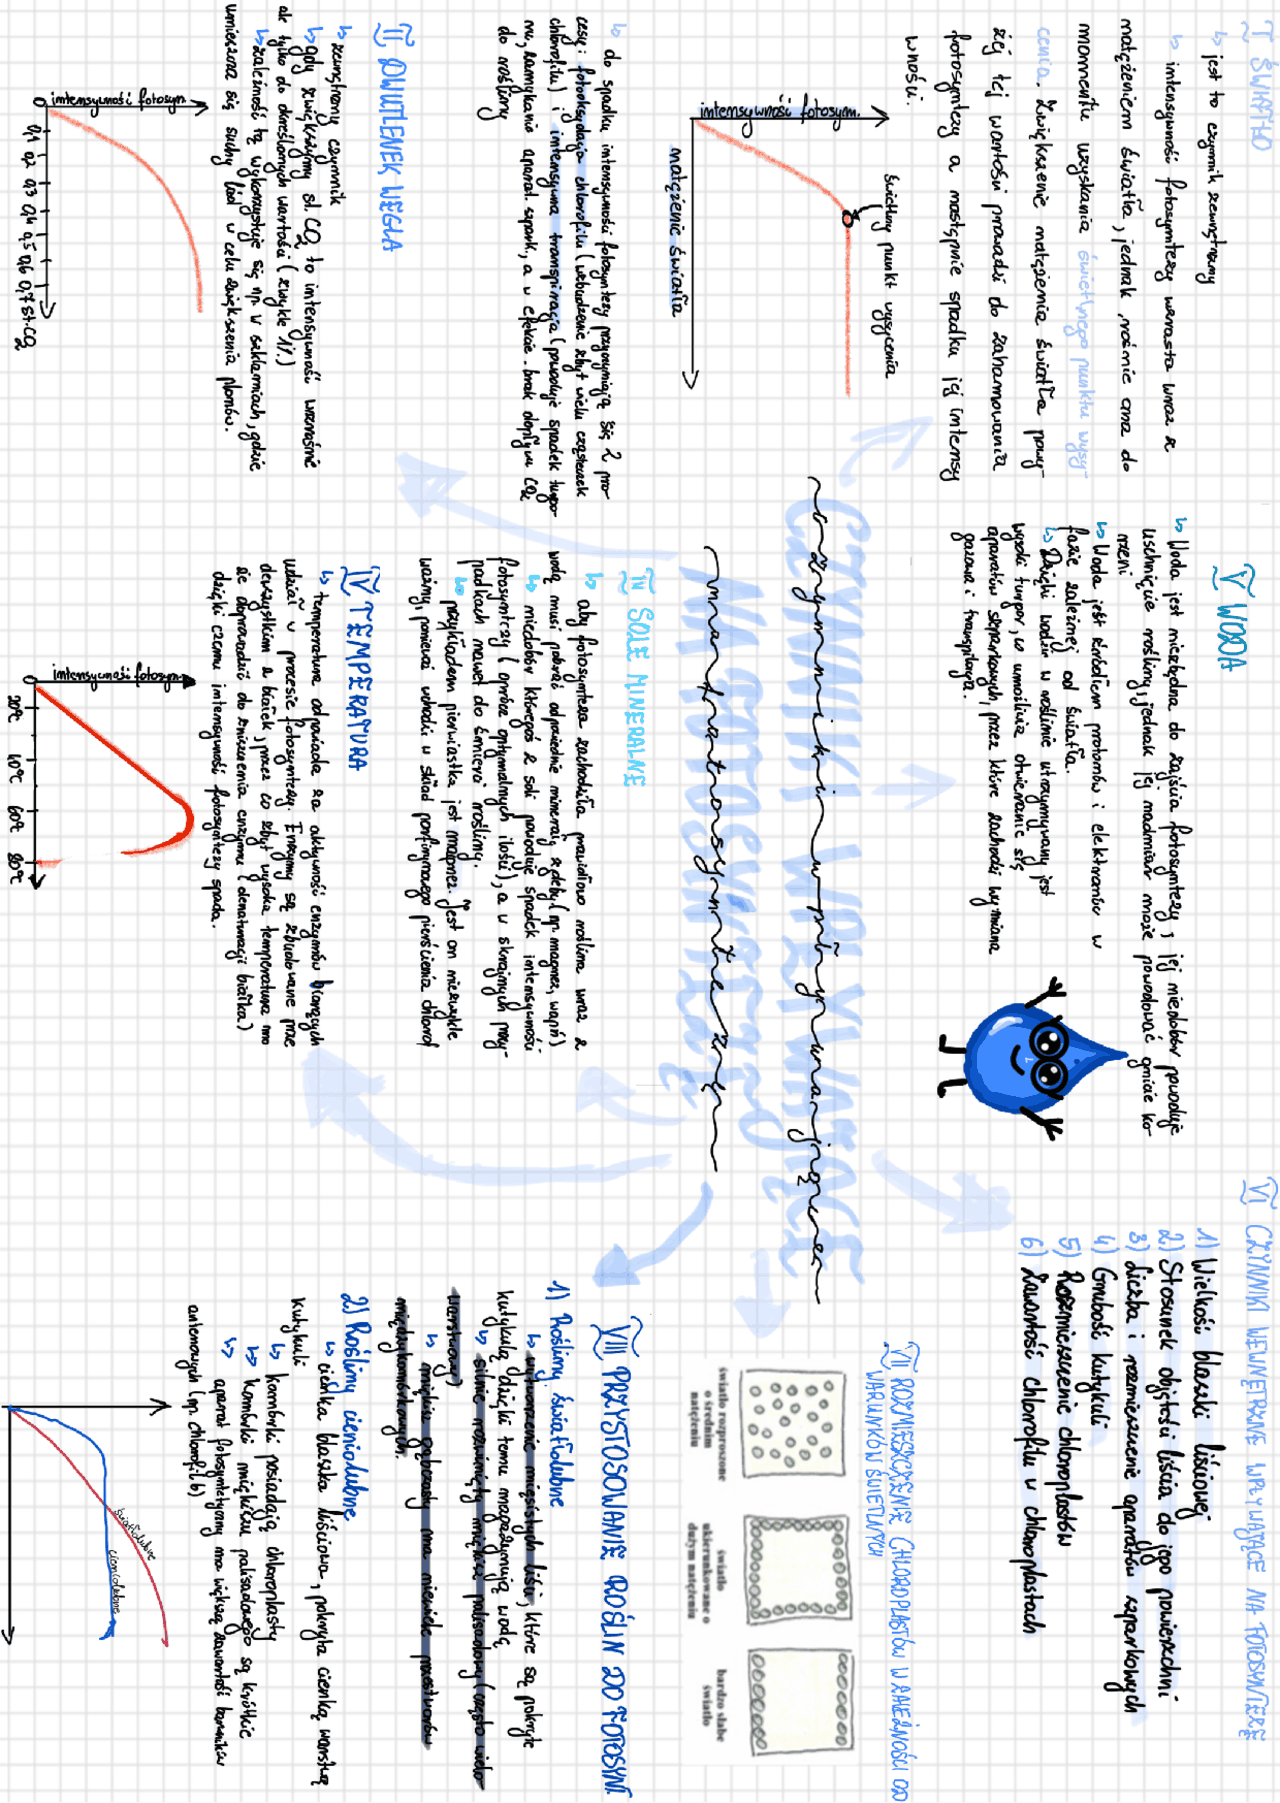 CZYNNIKI WPŁYWAJĄCE
NA FOTOSYNTEZĘ
czynniki wpływające
na fotosyntezę
I ŚWIATŁO
↳ jest to czynnik zewnętrzny
↳ intensywność fotosyntezy wzrasta wraz z
natężeniem światła, jednak rośnie ona do
momentu uzyskania świetlnego punktu wysy-
cenia. Zwiększenie natężenia światła powy-
żej tej wartości prowadzi do zahamowania
fotosyntezy a następnie spadku jej intensy
wności.
intensywność fotosym.
świetlny punkt wysycenia
natężenie światła
↳ do spadku intensywności fotosyntezy przyczyniają się 2 pro-
cesy: fotooksydacja chlorofilu (wzbudzenie zbyt wielu cząsteczek
chlorofilu) i intensywna transpiracja (powoduje spadek turgo-
ru, zamykanie aparat. szpark., a w efekcie - brak dopływu CO2
do rośliny
II DWUTLENEK WĘGLA
↳ zewnętrzny czynnik
↳ gdy zwiększymy st. CO2 to intensywność wzrośnie
ale tylko do określonych wartości (zwykle 1%.)
↳ zależność tę wykorzystuje się np. w szklarniach, gdzie
umieszcza się suchy lód w celu zwiększenia plonów.
intensywność fotosym.
0 0,1 0,2 0,3 0,4 0,5 0,6 0,7 st. CO2
III SOLE MINERALNE
↳ aby fotosynteza zachodziła prawidłowo roślina wraz z
wodą musi pobrać odpowiednie minerały z gleby (np. magnez, wapń)
↳ niedobór któregoś z soli powoduje spadek intensywności
fotosyntezy (oprócz optymalnych ilości), a w skrajnych przy-
padkach nawet do śmierci rośliny.
↳ przykładem pierwiastka jest magnez. Jest on niezwykle
ważny, ponieważ wchodzi w skład porfirynowego pierścienia chlorof
IV TEMPERATURA
↳ temperatura odpowiada za aktywność enzymów biorących
udział w procesie fotosyntezy. Enzymy są zbudowane prze
dewszystkim z białek, przez co zbyt wysoka temperatura mo
że doprowadzić do zniszczenia enzymu (denaturacji białka)
dzięki czemu intensywność fotosyntezy spada.
intensywność fotosym.
0 20°C 40°C 60°C 80°C
V WODA
↳ Woda jest niezbędna do zajścia fotosyntezy, jej niedobór powoduje
uschnięcie rośliny, jednak jej nadmiar może powodować gnicie ko-
rzeni
↳ Woda jest źródłem protonów i elektronów w
fazie zależnej od światła.
↳ Dzięki wodzie w roślinie utrzymywany jest
wysoki turgor, co umożliwia otwieranie się
aparatów szparkowych, przez które zachodzi wymiana
gazowa i transpiracja.
VI CZYNNIKI WEWNĘTRZNE WPŁYWAJĄCE NA FOTOSYNTEZĘ
1) Wielkość blaszki liściowej
2) Stosunek objętości liścia do jego powierzchni
3) Liczba i rozmieszczenie aparatów szparkowych
4) Grubość kutykuli
5) Rozmieszczenie chloroplastów
6) Zawartość chlorofilu w chloroplastach
VII ROZMIESZCZENIE CHLOROPLASTÓW W ZALEŻNOŚCI OD
WARUNKÓW ŚWIETLNYCH
światło rozproszone
o średnim
natężeniu
światło
ukierunkowane o
dużym natężeniu
bardzo słabe
światło
VIII PRZYSTOSOWANIE ROŚLIN DO FOTOSYNT
1) Rośliny światłolubne
↳ wytworzenie mięsistych liści, które są pokryte
kutykulą dzięki temu magazynują wodę
↳ silnie rozwinięty miękisz palisadowy (często wielo-
warstwowy)
↳ miękisz gąbczasty ma niewiele przestworów
międzykomórkowych.
2) Rośliny cieniolubne
↳ cienka blaszka liściowa, pokryta cienką warstwą
kutykuli
↳ komórki posiadają chloroplasty
↳ komórki miękiszu palisadowego są krótkie
↳ aparat fotosyntetyczny ma większą zawartość barwników
antenowych (np. chlorofil b)
światłolubne
cieniolubne